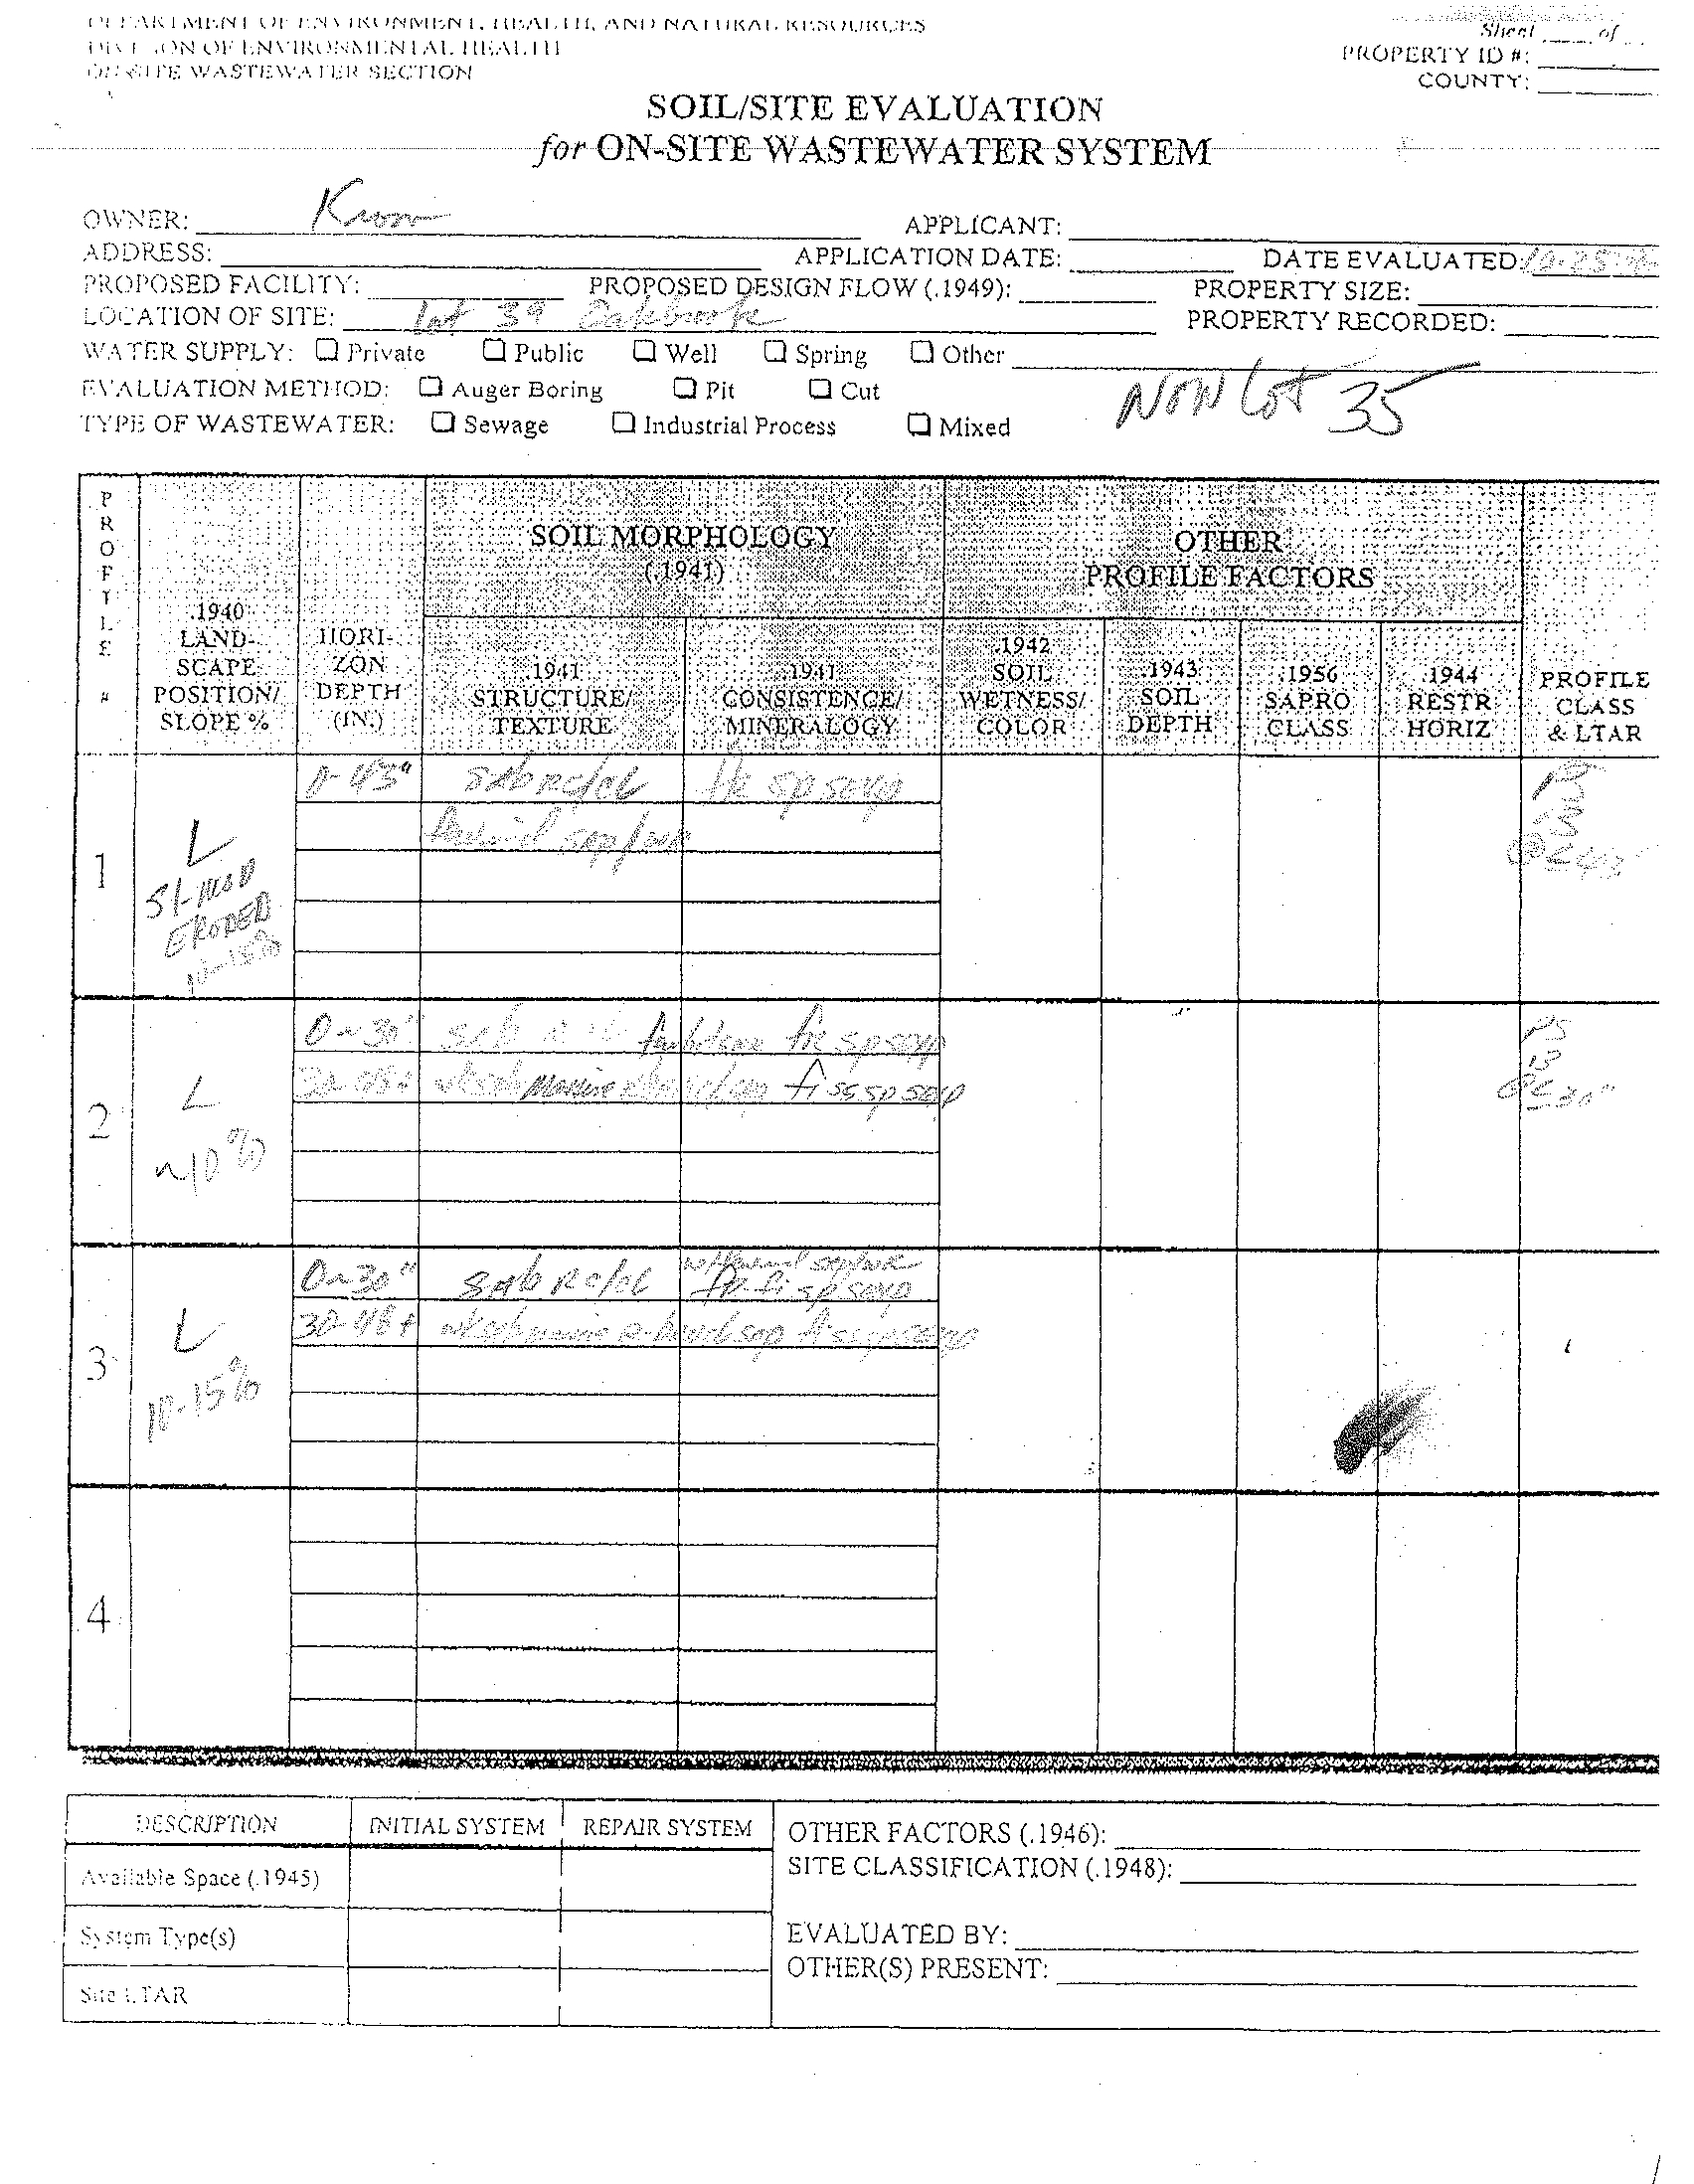 DEPARTMENT OF ENVIRONMENT, HEALTH, AND NATURAL RESOURCES
DIVISION OF ENVIRONMENTAL HEALTH
ON-SITE WASTEWATER SECTION
Sheet ____ of
PROPERTY ID #:
COUNTY:
SOIL/SITE EVALUATION
for ON-SITE WASTEWATER SYSTEM
OWNER:
APPLICANT:
ADDRESS:
APPLICATION DATE:
DATE EVALUATED: 10-25
PROPOSED FACILITY:
PROPOSED DESIGN FLOW (.1949):
PROPERTY SIZE:
LOCATION OF SITE: Lot 39 Oakbrook
PROPERTY RECORDED:
WATER SUPPLY: Private Public Well Spring Other
EVALUATION METHOD: Auger Boring Pit Cut
NOW Lot 35
TYPE OF WASTEWATER: Sewage Industrial Process Mixed
PROFILE #
.1940 LAND-SCAPE POSITION/ SLOPE %
HORI-ZON DEPTH (IN.)
SOIL MORPHOLOGY (.1941)
.1941 STRUCTURE/ TEXTURE
.1941 CONSISTENCE/ MINERALOGY
OTHER PROFILE FACTORS
.1942 SOIL WETNESS/ COLOR
.1943 SOIL DEPTH
.1956 SAPRO CLASS
.1944 RESTR HORIZ
PROFILE CLASS & LTAR
1
L
Sl-MOD
ERODED
10-15%
0-43" SAb R c/cl fr sp sexp
PS
2
L
~10%
0-30" sab fr sp sexp
30-48+ fi ss sp sexp
PS
.3
@≤30"
3
L
10-15%
0-30" sAb R c/cl fr-fi sp sexp
30-48+
4
DESCRIPTION INITIAL SYSTEM REPAIR SYSTEM
Available Space (.1945)
System Type(s)
Site LTAR
OTHER FACTORS (.1946):
SITE CLASSIFICATION (.1948):
EVALUATED BY:
OTHER(S) PRESENT: